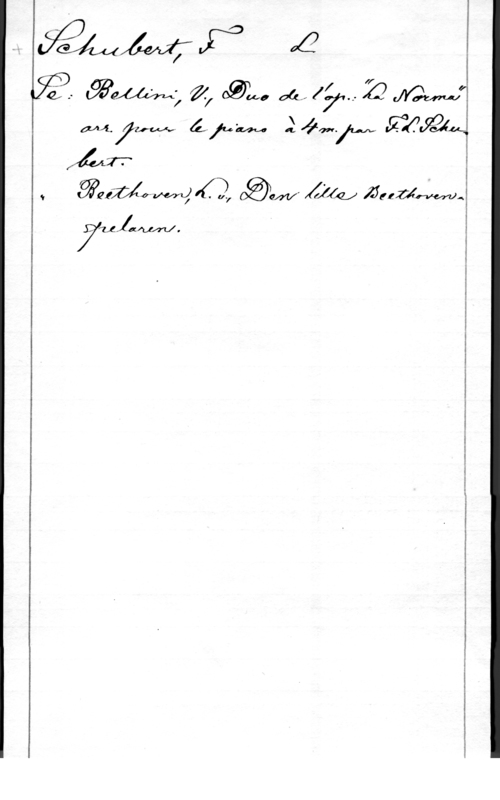 Schubert, F L
Se: Bellini, V., Duo de l'op.: "La Norma"
arr. pour le piano à 4 m. par F. L. Schu-
bert.
" Beethoven, L. v., Den lille Beethoven-
spelaren.